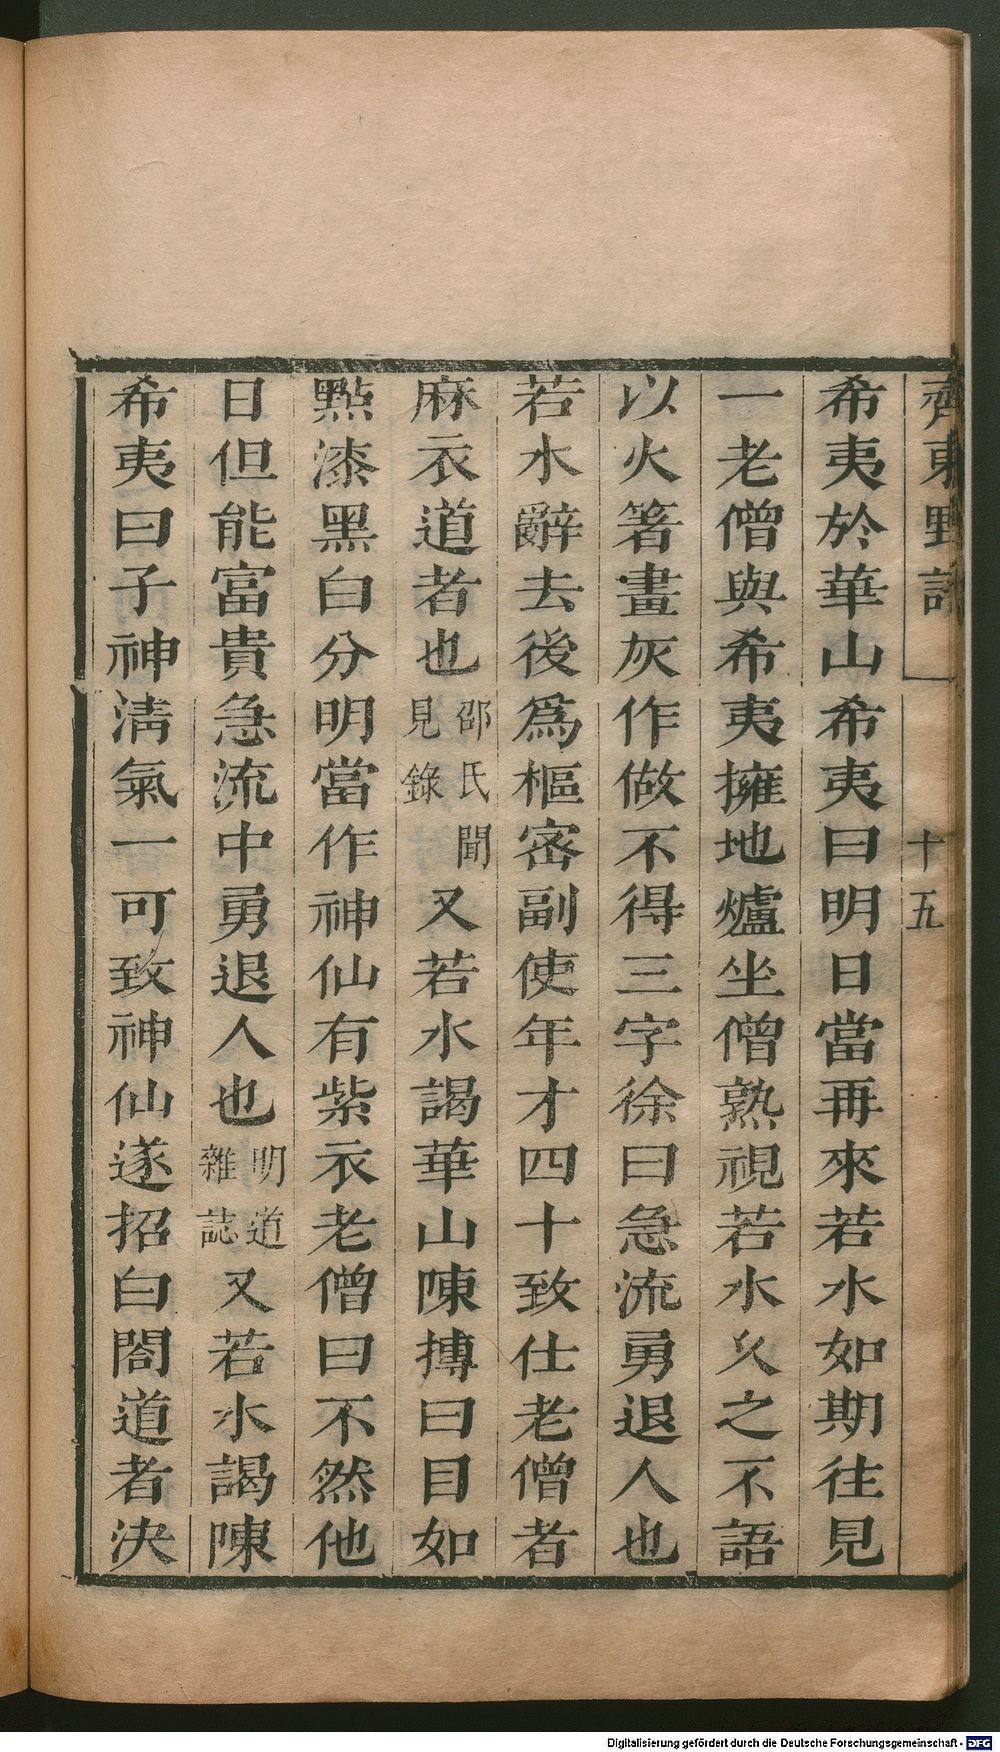 齊東野語
十五
希夷於華山希夷曰明日當再來若水如期往見
一老僧與希夷擁地爐坐僧熟視若水久之不語
以火箸畫灰作做不得三字徐曰急流勇退人也
若水辭去後爲樞密副使年才四十致仕老僧者
麻衣道者也邵氏聞見錄又若水謁華山陳摶曰目如
點漆黑白分明當作神仙有紫衣老僧曰不然他
日但能富貴急流中勇退人也明道雜誌又若水謁陳
希夷曰子神淸氣一可致神仙遂招白閤道者決
Digitalisierung gefördert durch die Deutsche Forschungsgemeinschaft - DFG